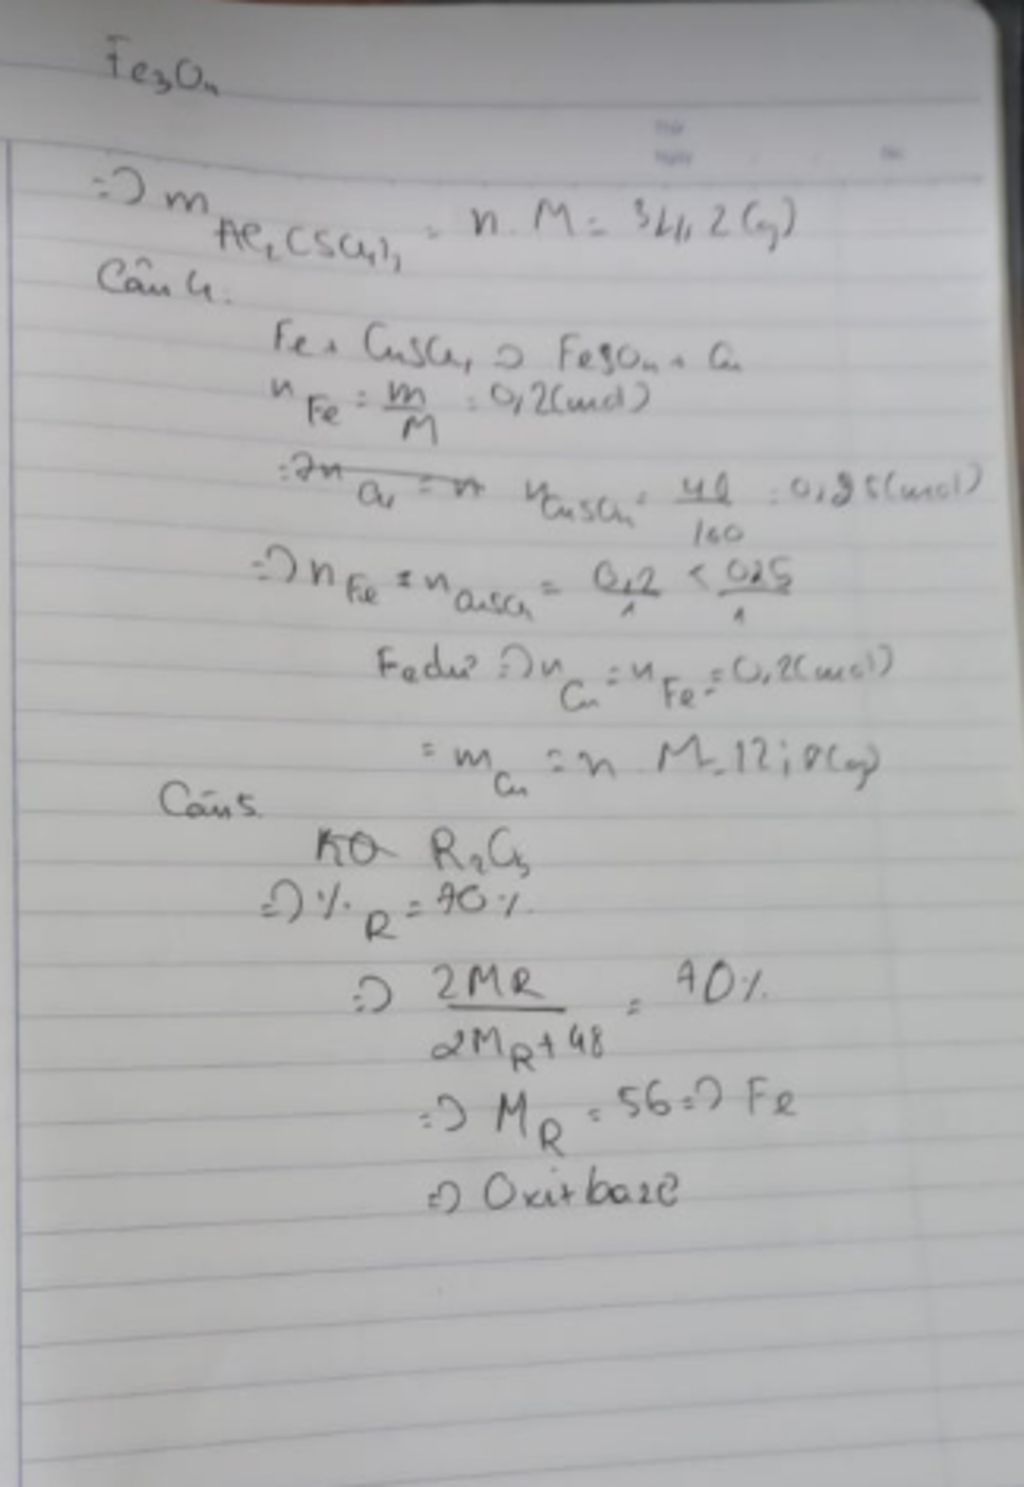 Fe₃O₄
=> m Al₂(SO₄)₃ = n. M = 34,2 (g)
Câu 4.
Fe + CuSO₄ => FeSO₄ + Cu
n Fe = m/M = 0,2 (mol)
=> n Cu = n n CuSO₄ = 40/160 = 0,25 (mol)
=> n Fe = n CuSO₄ = 0,2/1 < 0,25/1
Fe dư => n Cu = n Fe = 0,2 (mol)
= m Cu = n M = 12,8 (g)
Câu 5.
R₂O₃
=> % R = 70%.
=> 2MR / 2MR + 48 = 70%
=> MR = 56 => Fe
=> Oxit baze